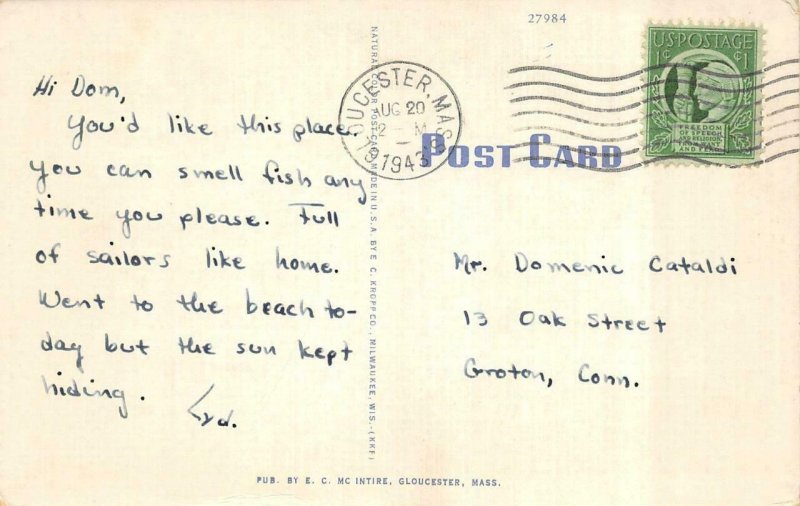 27984
Hi Dom,
You'd like this place.
You can smell fish any
time you please. Full
of sailors like home.
Went to the beach to-
day but the sun kept
hiding.
NATURAL COLOR POST CARD MADE IN U.S.A. BY E. C. KROPP CO., MILWAUKEE, WIS.-(KKF)
GLOUCESTER, MASS.
AUG 20
1943
U.S. POSTAGE
1¢ ¢1
FREEDOM
OF SPEECH
AND RELIGION
FROM WANT
AND FEAR
POST CARD
Mr. Domenic Cataldi
13 Oak Street
Groton, Conn.
PUB. BY E. C. MC INTIRE, GLOUCESTER, MASS.